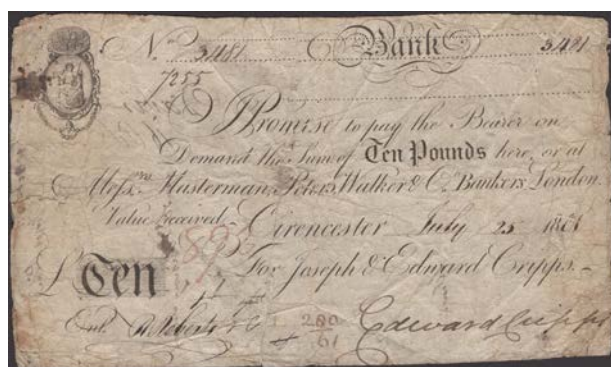 No. 3481 Bank 3481
7255
I Promise to pay the Bearer on
Demand the Sum of Ten Pounds here, or at
Messrs. Masterman, Peters, Walker & Co. Bankers London
Value received Cirencester July 25
£ Ten For Joseph & Edward Cripps
Entd. Edward Cripps
200
61